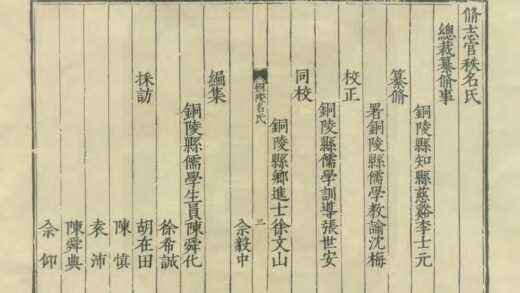 脩志官秩名氏
總裁纂脩事
銅陵縣知縣慈谿李士元
纂脩
署銅陵縣儒學教諭沈梅
校正
銅陵縣儒學訓導張世安
同校
銅陵縣鄉進士徐文山
銅陵名氏 三
佘毅中
編集
銅陵縣儒學生員陳舜化
徐希誠
採訪
胡在田
陳慎
袁沛
陳舜典
佘仰